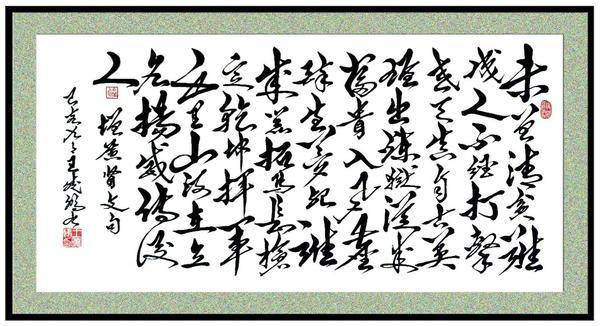 未曾清貧難
成人不經打擊
老天真自古英
雄出煉獄從來
富貴入凡塵
醉生夢死誰
成器拓馬長槍
定乾坤揮軍
千里山河在立
名揚威傳後
人
增廣賢文句